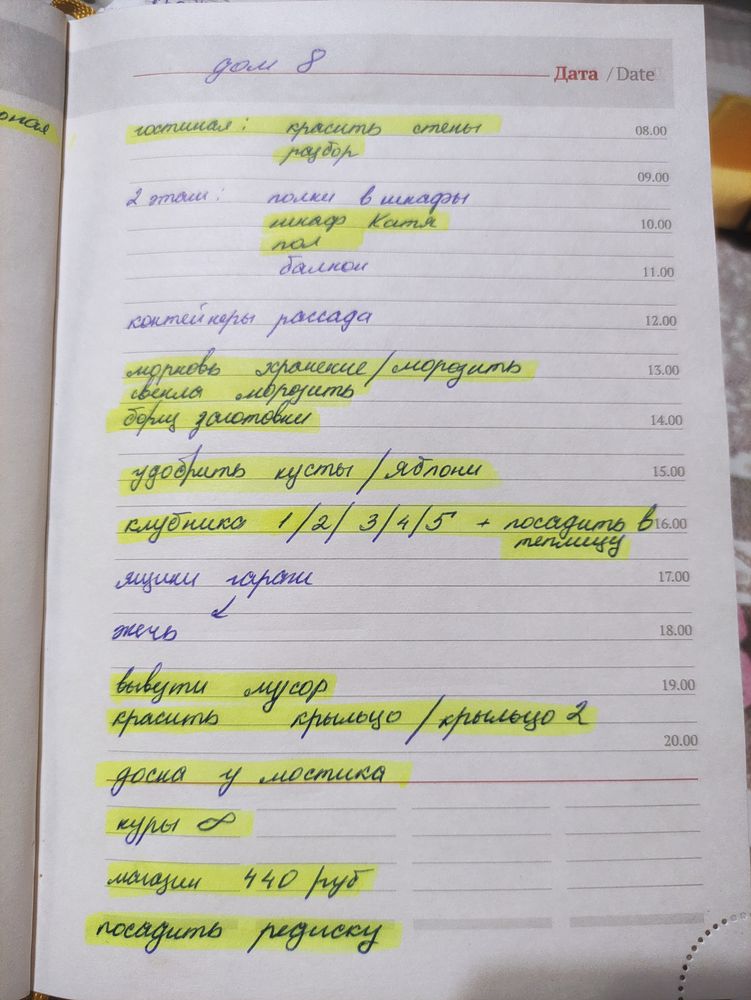 дом 8
Дата / Date
гостиная: красить стены 08.00
разбор
09.00
2 этаж: полки в шкафы
шкаф Катя 10.00
пол
балкон 11.00
контейнеры рассада 12.00
морковь хранение/морозить 13.00
свекла морозить
борщ заготовки 14.00
удобрить кусты / яблони 15.00
клубника 1/2/3/4/5 + посадить в 16.00
теплицу
ящики гараж 17.00
↙
жечь 18.00
вывезти мусор 19.00
красить крыльцо / крыльцо 2
20.00
доска у мостика
куры ∞
магазин 440 руб
посадить редиску